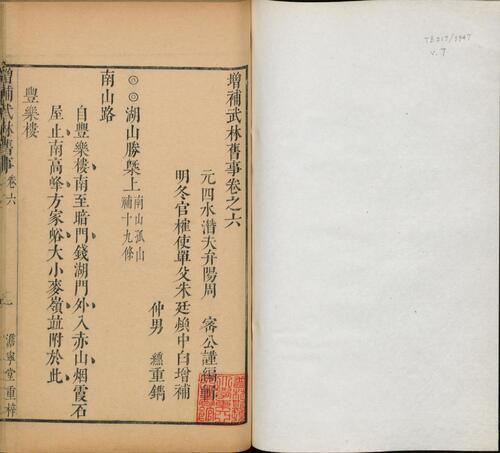 增補武林舊事卷之六
元四水潛夫弁陽周 密公謹編輯
明冬官榷使單父朱廷煥中白增補
仲男 𬙋重鐫
◎◎湖山勝槩上 南山孤山
補十九條
南山路
自豐樂樓南至暗門錢湖門外入赤山烟霞石
屋止南高峰方家峪大小麥嶺並附於此
豐樂樓
增補武林舊事 卷六
澹寧堂重梓
TB 217/3947
v.7